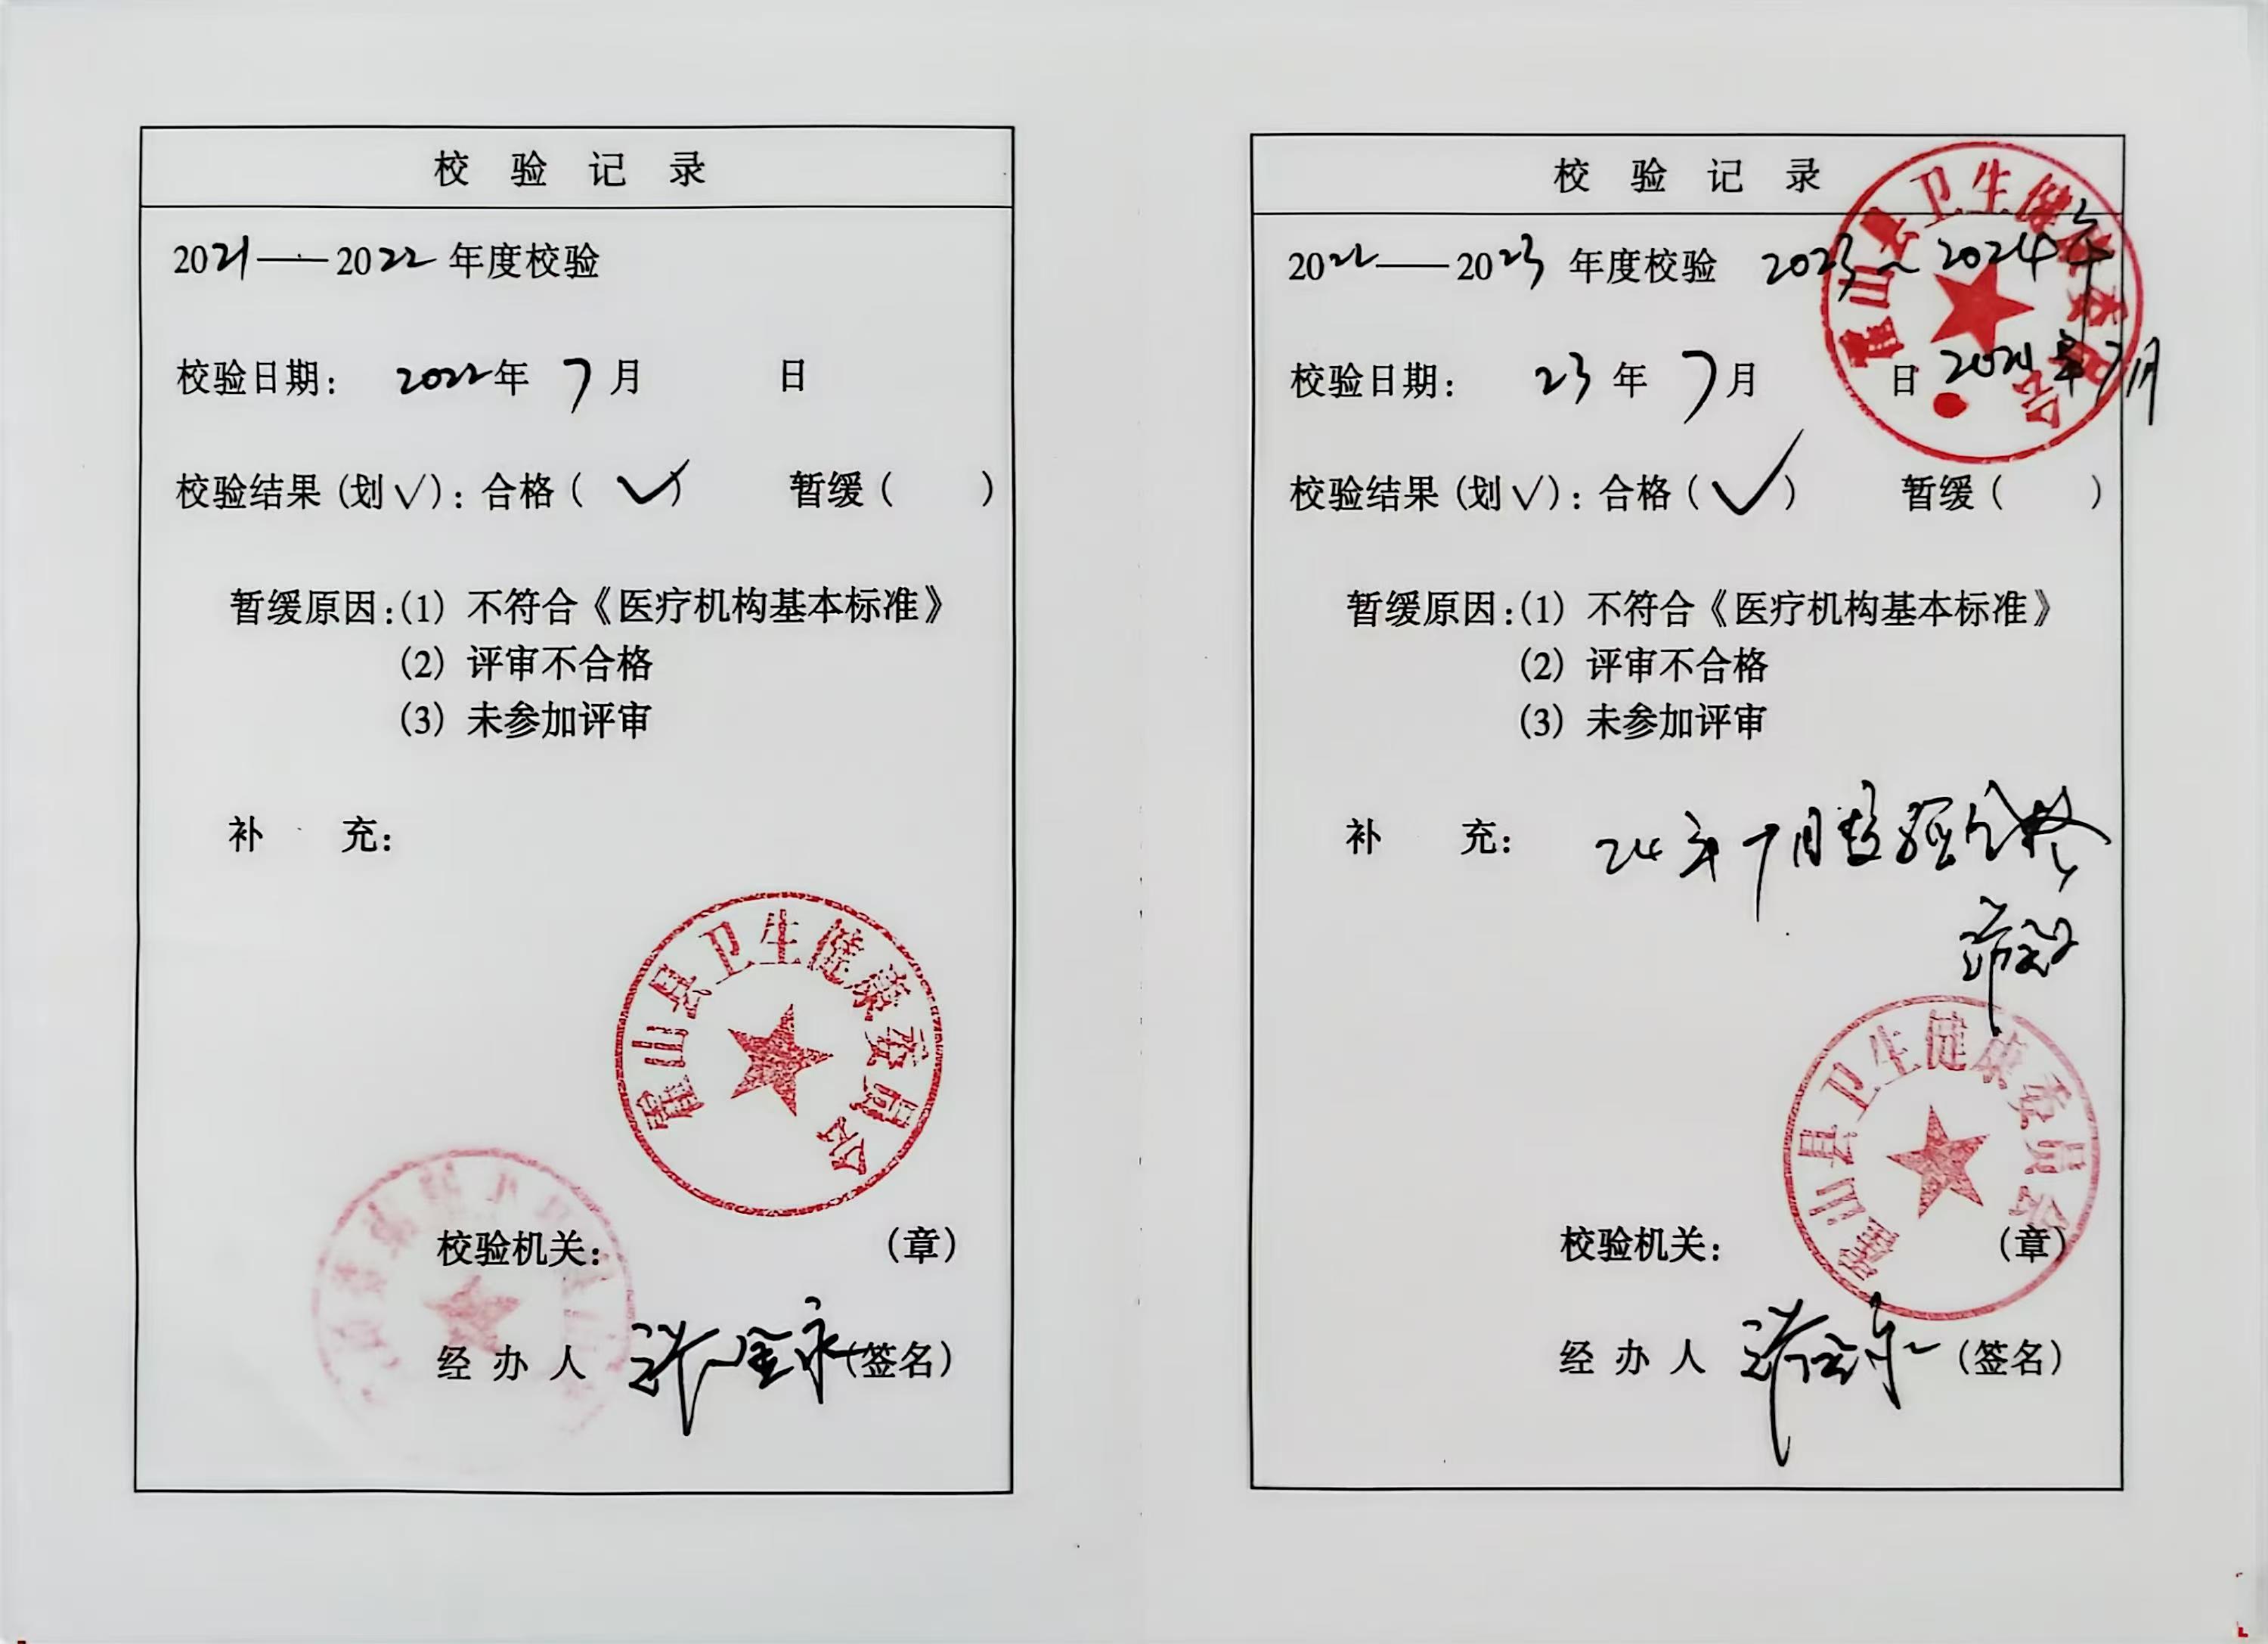 校验记录
2021——2022年度校验
校验日期：2022年7月 日
校验结果(划√)：合格(✓) 暂缓( )
暂缓原因：(1) 不符合《医疗机构基本标准》
(2) 评审不合格
(3) 未参加评审
补 充：
霍山县卫生健康委员会
校验机关： (章)
经办人 (签名)
校验记录
2022——2023年度校验 2023~2024年
霍山县卫生健康委员会
校验日期：23年7月 日 2024年7月
校验结果(划√)：合格(✓) 暂缓( )
暂缓原因：(1) 不符合《医疗机构基本标准》
(2) 评审不合格
(3) 未参加评审
补 充：24年7月校验合格
霍山县卫生健康委员会
校验机关： (章)
经办人 (签名)